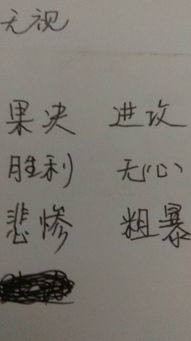 无视
果决 进攻
胜利 无心
悲惨 粗暴